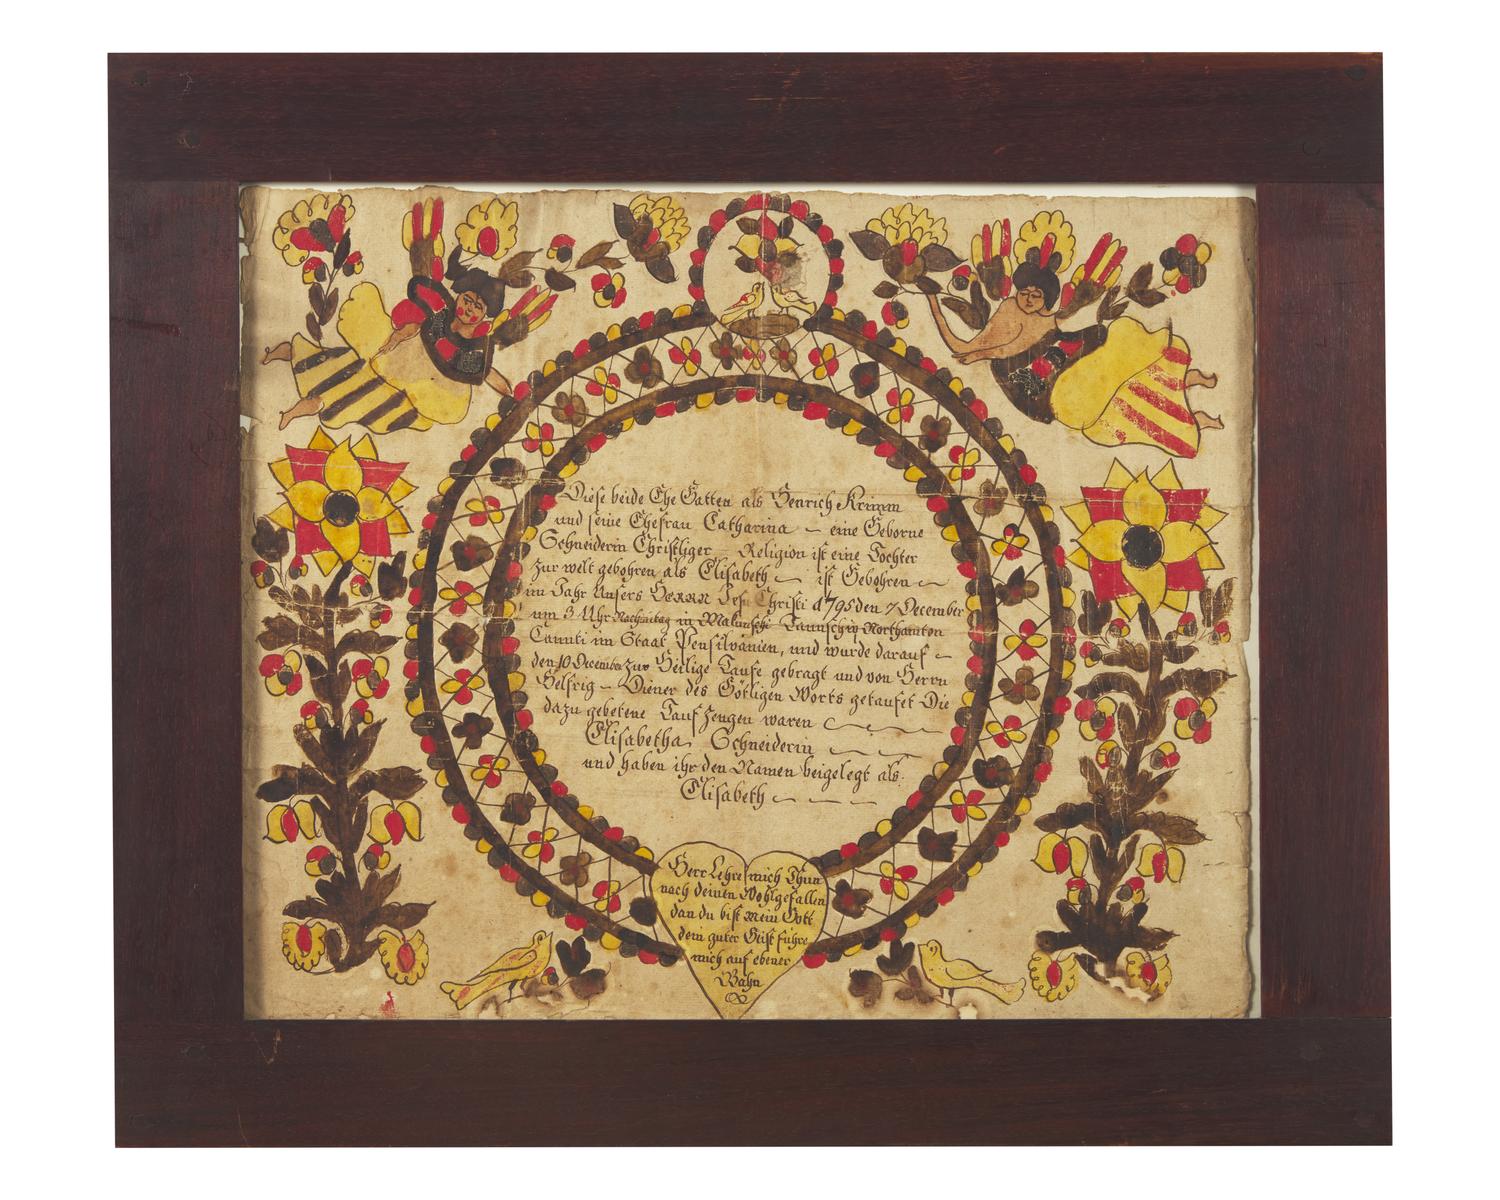 Diese beide Ehe Gatten als Henrich Krimm
und seine Ehefrau Catharina – eine Geborne
Schneiderin Christliger – Religion ist eine Tochter
zur welt gebohren als Elisabeth – ist Gebohren –
im Jahr Unsers HERRN Jesu Christi d 1795 den 7 December
um 3 Uhr Nachmitag in Malunschi Taunschip Northamton
Caunti im Staat Pensilvanien, und wurde darauf –
den 10 December zur Heilige Taufe gebragt und von Herrn
Helfrig – Diener des Götligen Worts getaufet Die
dazu gebetene Tauf Zeugen waren
Elisabetha Schneiderin
und haben ihr den Namen beigelegt als
Elisabeth – – – –
Herr Lehre mich Thun
nach deinen Wohlgefallen
dan du bist Mein Gott
dein guter Geist führe
mich auf ebener
Bahn